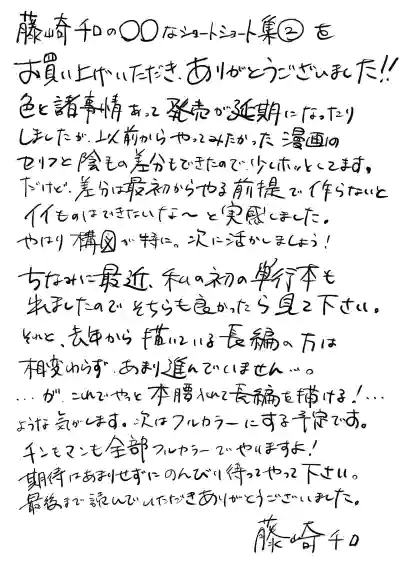 藤崎チロの〇〇なショートショート集②を
お買い上げいただき、ありがとうございました!!
色々諸事情あって発売が延期になったり
しましたが、以前からやってみたかった漫画内
セリフと陰毛の差分もできたので、少しホッとしてます。
だけど、差分は最初からやる前提で作らないと
イイものはできないな～と実感しました。
やはり構図が特に。次に活かしましょう!
ちなみに最近、私の初の単行本も
出ましたのでそちらも良かったら見て下さい。
それと、去年から描いている長編の方は
相変わらず、あまり進んでいません…。
…が、これでやっと本腰入れて長編を描ける!…
ような気がします。次はフルカラーにする予定です。
チンもマンも全部フルカラーでやりますよ!
期待はあまりせずにのんびり待ってやって下さい。
最後まで読んでいただきありがとうございました。
藤崎チロ